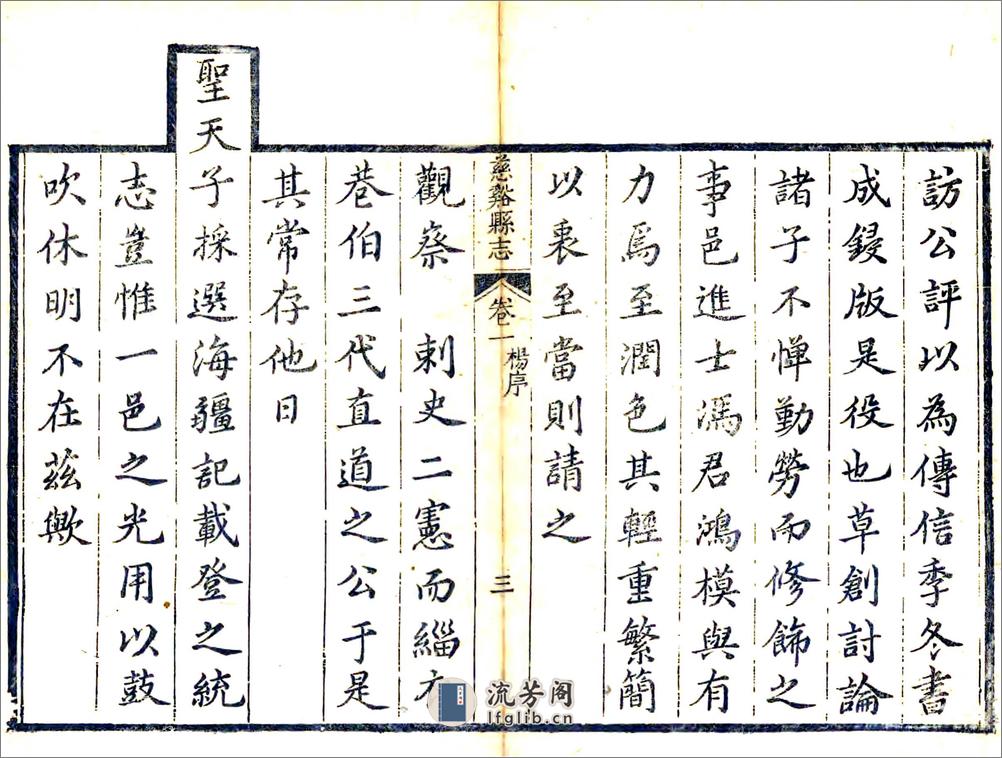 訪公評以為傳信季冬書
成鋟版是役也草創討論
諸子不憚勤勞而修飾之
事邑進士馮君鴻模與有
力焉至潤色其輕重繁簡
以衷至當則請之
慈谿縣志 卷一 楊序 三
觀察 刺史二憲而緇衣
巷伯三代直道之公于是
其常存他日
聖天子採選海疆記載登之統
志豈惟一邑之光用以鼓
吹休明不在茲歟
流芳阁
lfglib.cn